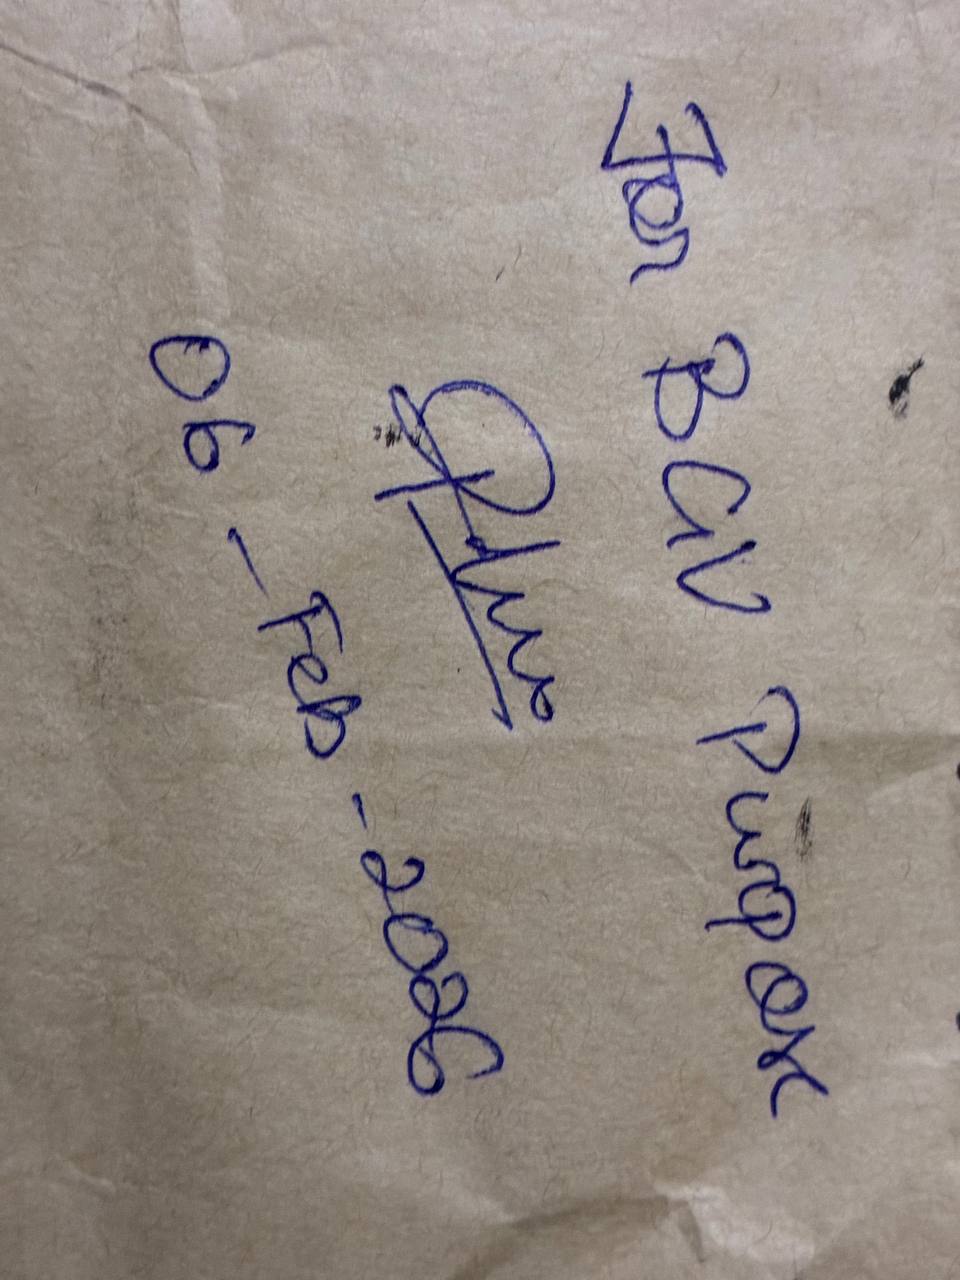 For BGV Purpose
06-Feb-2026